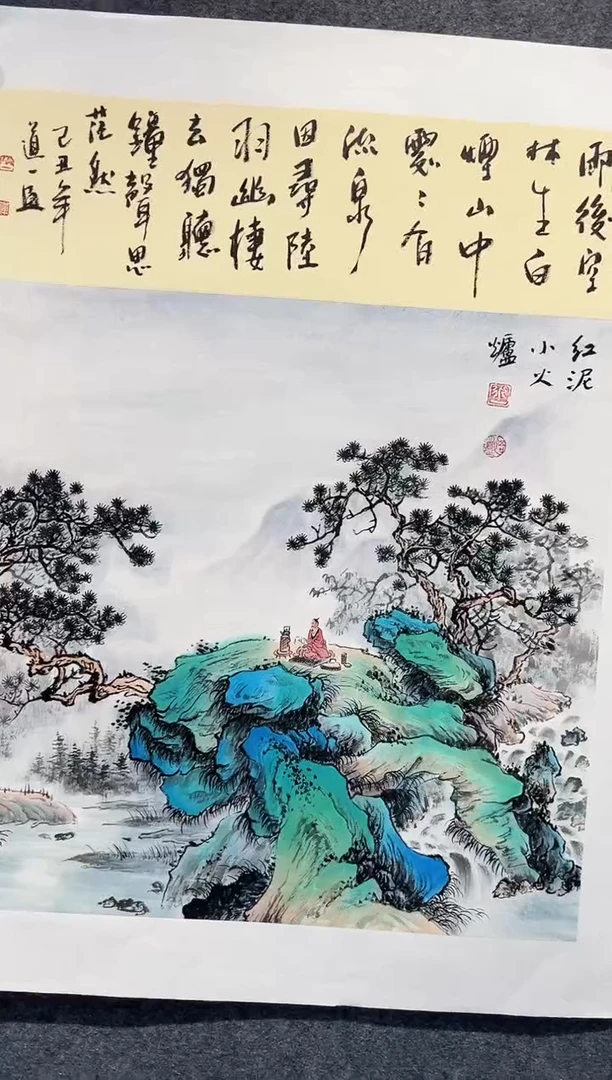 雨後空
林生白
煙山中
處〻有
流泉
因尋陸
羽幽棲
去獨聽
鐘聲思
茫然
己丑年
道一
紅泥
小火
爐